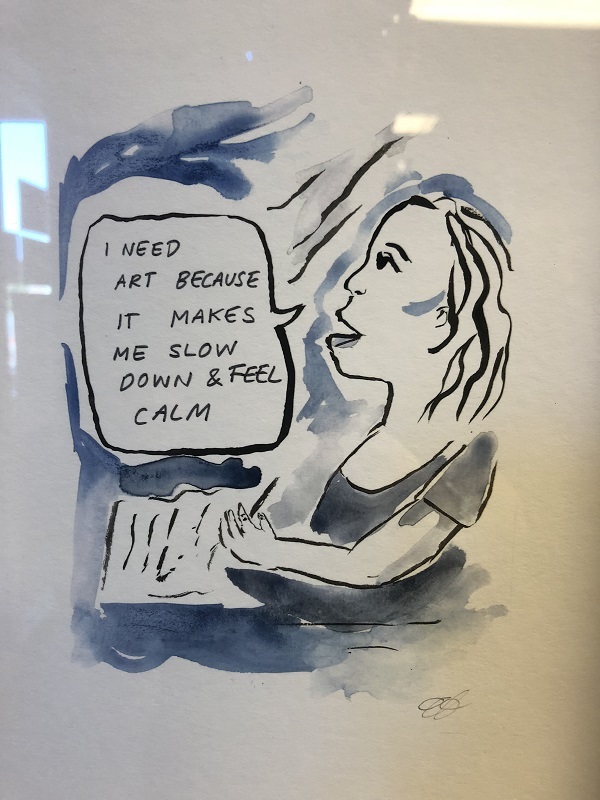 I NEED
ART BECAUSE
IT MAKES
ME SLOW
DOWN & FEEL
CALM